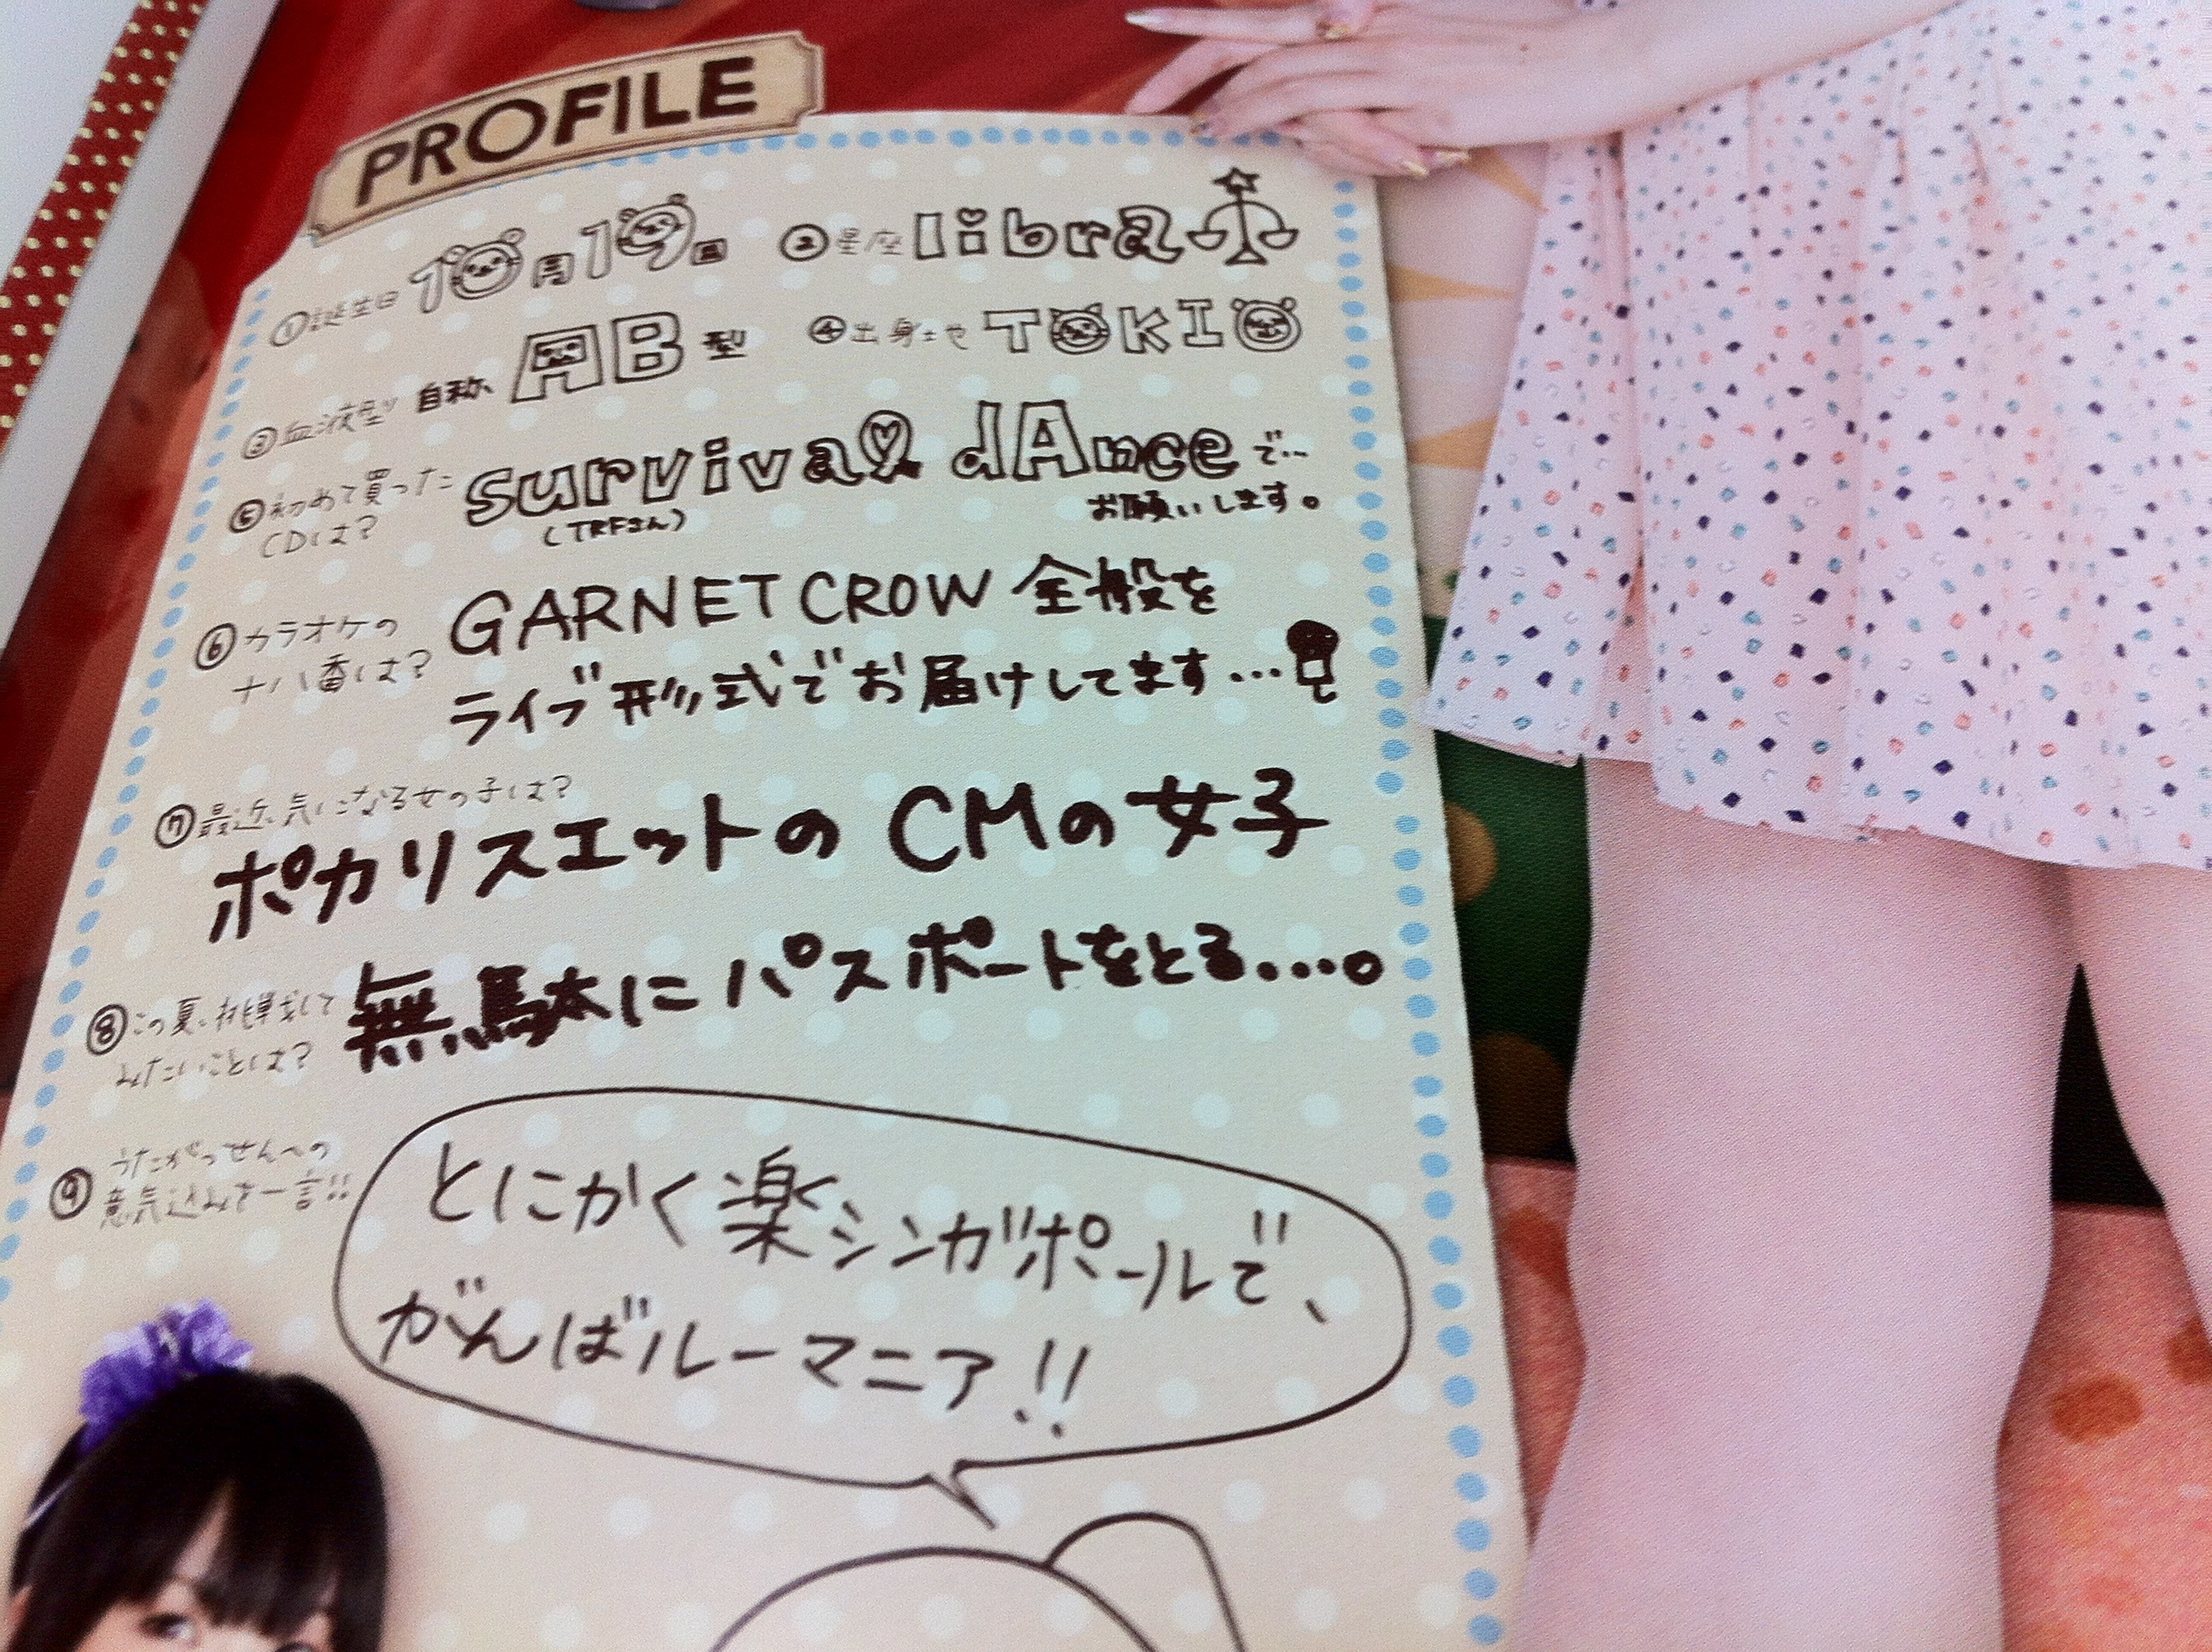 PROFILE
①誕生日 10月19日 ②星座 libra
③血液型 自称 AB型 ④出身地 TOKIO
⑤初めて買った survival dAnce で…
CDは? (TRFさん) お願いします。
⑥カラオケの GARNET CROW 全般を
十八番は? ライブ形式でお届けしてます…
⑦最近、気になる女の子は?
ポカリスエットの CMの女子
⑧この夏、挑戦して 無駄に パスポートをとる...。
みたいことは?
⑨うたがっせんへの
意気込みを一言!!
とにかく楽シンガポールで、
がんばルーマニア!!